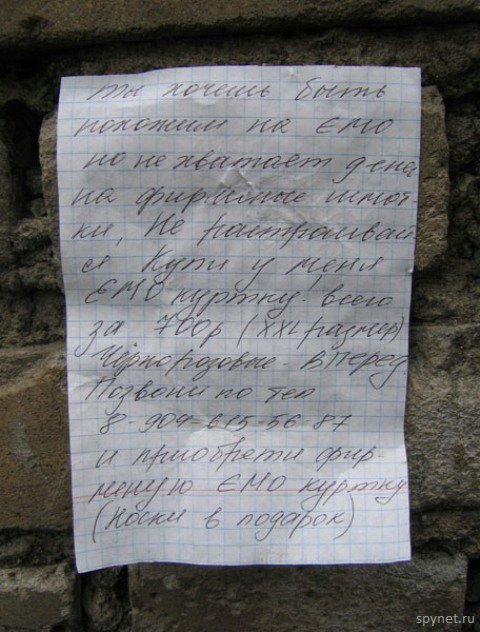 ты хочешь быть
похожим на ЕМО
но не хватает дене
на фирменные шмот-
ки, Не растраивай
ся Купи у меня
ЕМО куртку всего
за 700р (XXL размер)
Чёрнорозовые - вперед
Позвони по тел
8-904-615-56-87
и приобрети фир-
меную ЕМО куртку
(носки в подарок)
spynet.ru